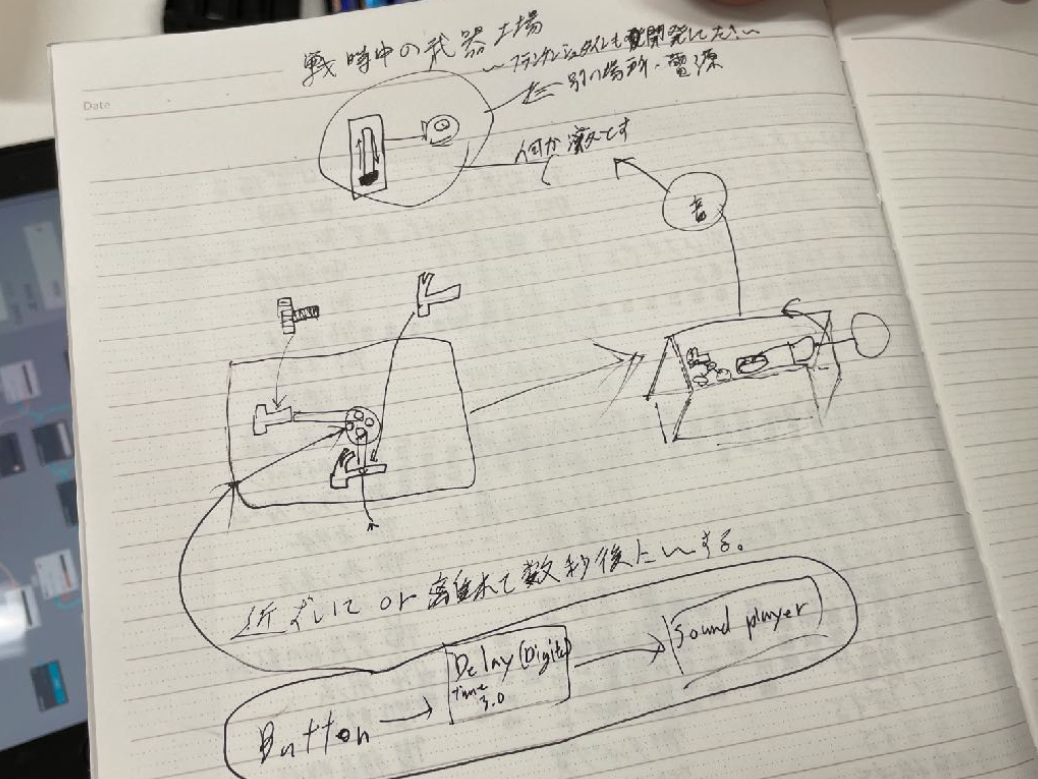 Date
戦時中の武器工場
〜フランケンシュタインも開発したい〜
別の場所・電源
何か演えとす
音
近づいて or 離れて数秒後に〜する。
Button
Delay (Digits)
Time
3.0
Sound player